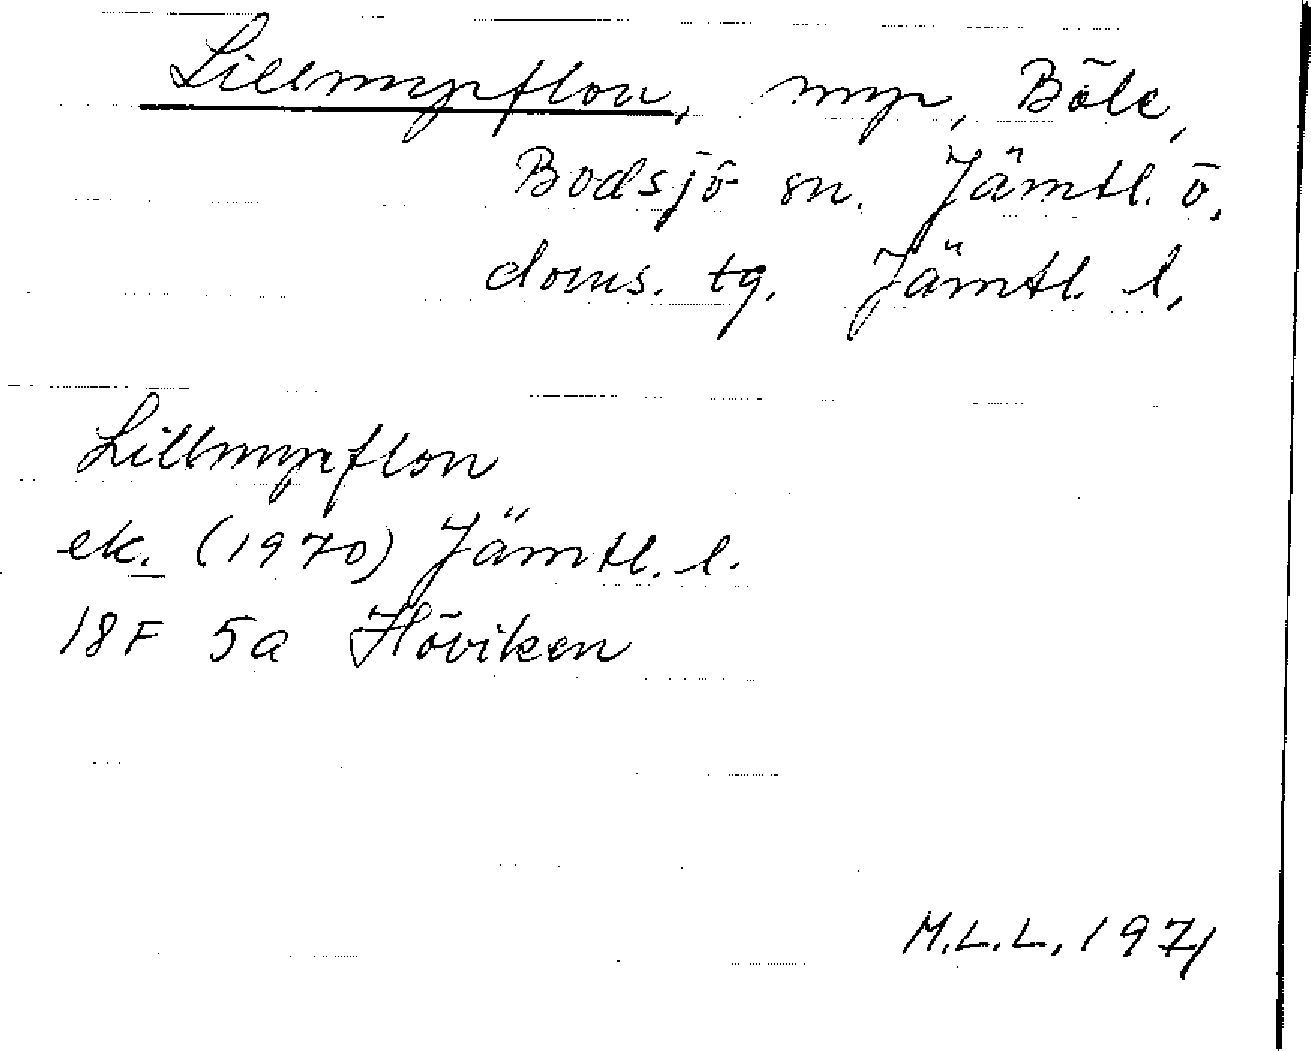 Lillmyrflon, myr, Böle,
Bodsjö sn. Jämtl. ö.
doms. tg. Jämtl. l.
Lillmyrflon
ek. (1970) Jämtl. l.
18F 5a Höviken
M.L.L. 1971